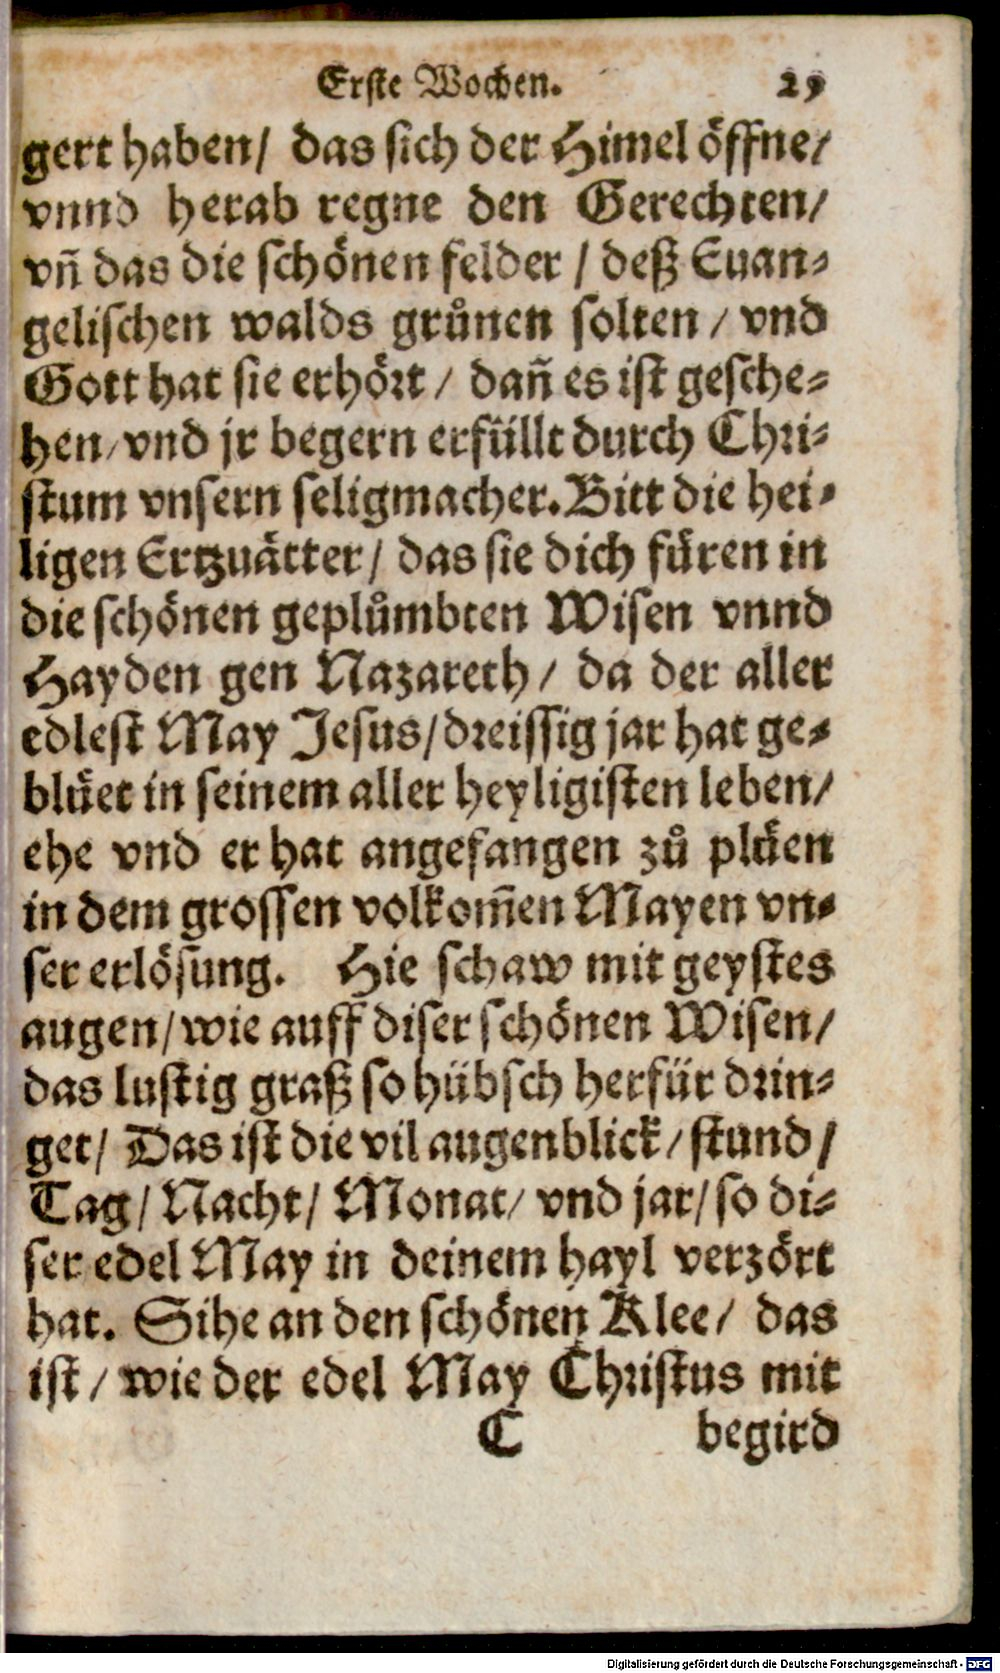 Erste Wochen. 25
gert haben/ das sich der Himel öffne/
vnnd herab regne den Gerechten/
vñ das die schönen felder / deß Euan-
gelischen walds grůnen solten / vnd
Gott hat sie erhört / dañ es ist gesche-
hen/vnd jr begern erfüllt durch Chri-
stum vnsern seligmacher. Bitt die hei-
ligen Ertzuätter / das sie dich füren in
die schönen geplůmbten Wisen vnnd
Hayden gen Nazareth / da der aller
edlest May Jesus/dreissig jar hat ge-
blüet in seinem aller heyligisten leben/
ehe vnd er hat angefangen zů plüen
in dem grossen volkom̃en Mayen vn-
ser erlösung. Hie schaw mit geystes
augen/wie auff diser schönen Wisen/
das lustig graß so hübsch herfür drin-
get/ Das ist die vil augenblick/stund/
Tag/Nacht/ Monat/ vnd jar/so di-
ser edel May in deinem hayl verzört
hat. Sihe an den schönen Klee/ das
ist / wie der edel May Christus mit
C begird
Digitalisierung gefördert durch die Deutsche Forschungsgemeinschaft - DFG